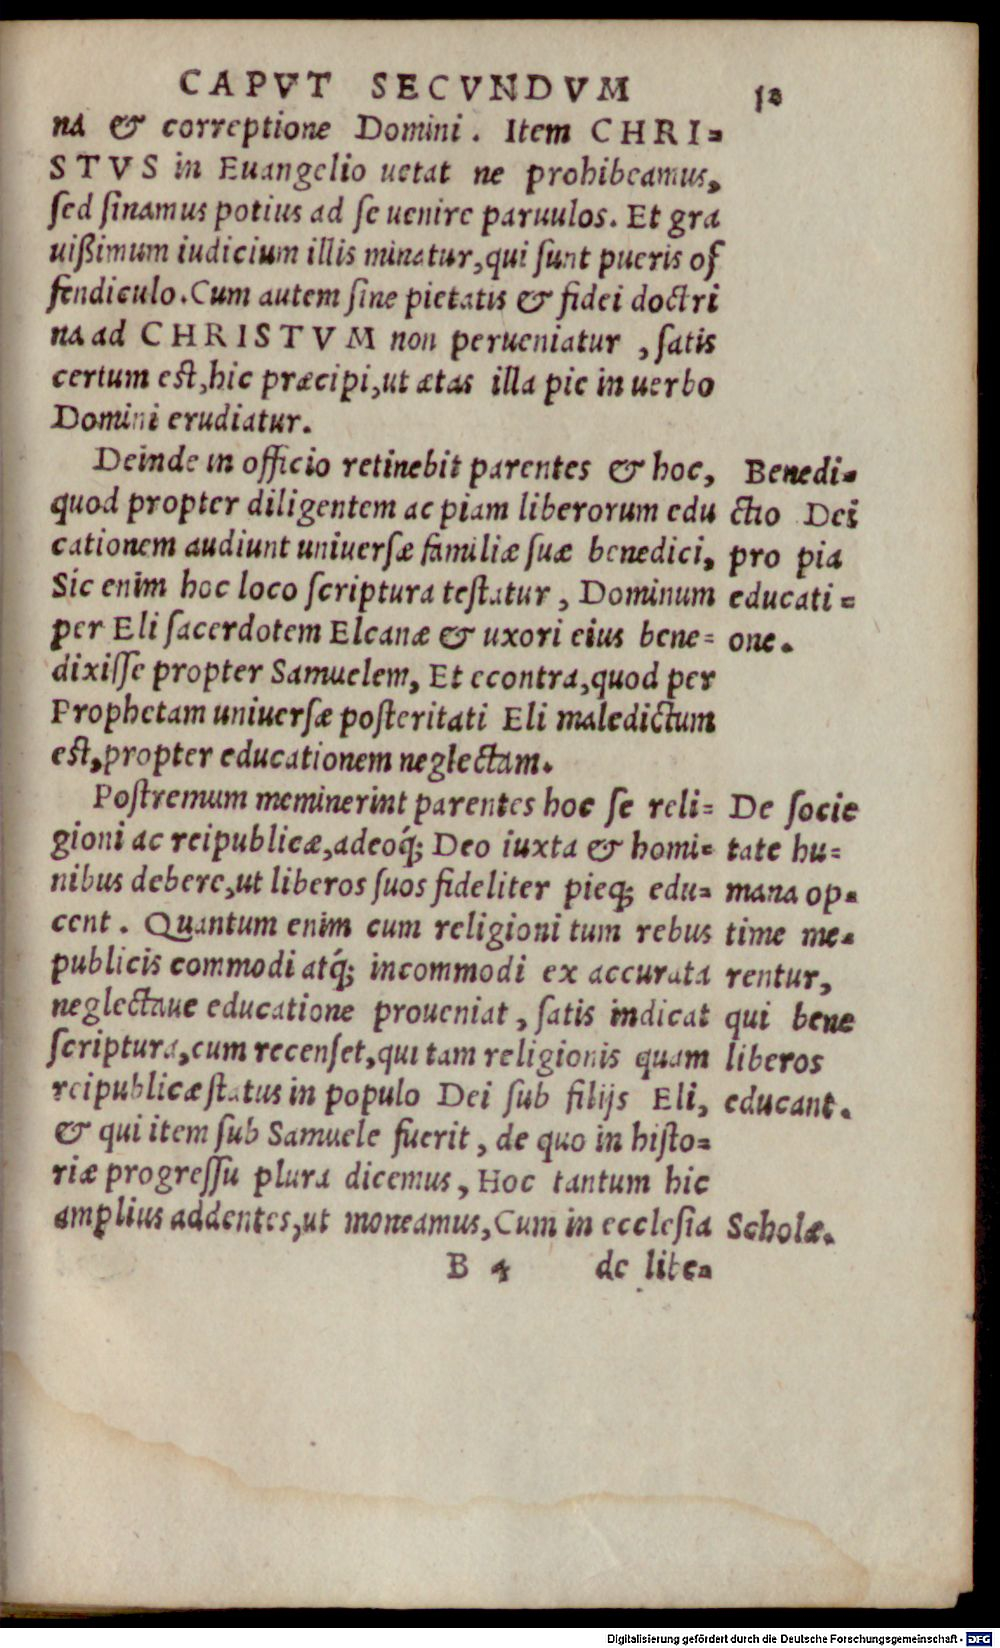 CAPVT SECVNDVM 12
na & correptione Domini. Item CHRI=
STVS in Euangelio uetat ne prohibeamus,
ſed ſinamus potius ad ſe uenire paruulos. Et gra
uißimum iudicium illis minatur, qui ſunt pueris of
fendiculo. Cum autem ſine pietatis & fidei doctri
na ad CHRISTVM non perueniatur, ſatis
certum eſt, hic præcipi, ut ætas illa pie in uerbo
Domini erudiatur.
Deinde in officio retinebit parentes & hoc,
quod propter diligentem ac piam liberorum edu
cationem audiunt uniuerſæ familiæ ſuæ benedici,
Sic enim hoc loco ſcriptura teſtatur, Dominum
per Eli ſacerdotem Elcanæ & uxori eius bene=
dixiſſe propter Samuelem, Et econtra, quod per
Prophetam uniuerſæ poſteritati Eli maledictum
eſt, propter educationem neglectam.
Benedi=
ctio Dei
pro pia
educati=
one.
Poſtremum meminerint parentes hoc ſe reli=
gioni ac reipublicæ, adeoq́; Deo iuxta & homi=
nibus debere, ut liberos ſuos fideliter pieq; edu=
cent. Quantum enim cum religioni tum rebus
publicis commodi atq́; incommodi ex accurata
neglectaue educatione proueniat, ſatis indicat
ſcriptura, cum recenſet, qui tam religionis quam
reipublicæ ſtatus in populo Dei ſub filijs Eli,
& qui item ſub Samuele fuerit, de quo in hiſto=
riæ progreſſu plura dicemus, Hoc tantum hic
amplius addentes, ut moneamus, Cum in eccleſia
De ſocie
tate hu=
mana op=
time me=
rentur,
qui bene
liberos
educant.
Scholæ.
B 4 de libe=
Digitalisierung gefördert durch die Deutsche Forschungsgemeinschaft - DFG